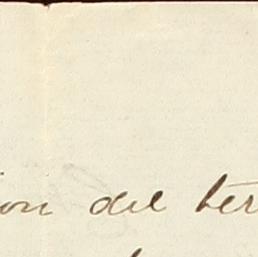 ion del ter